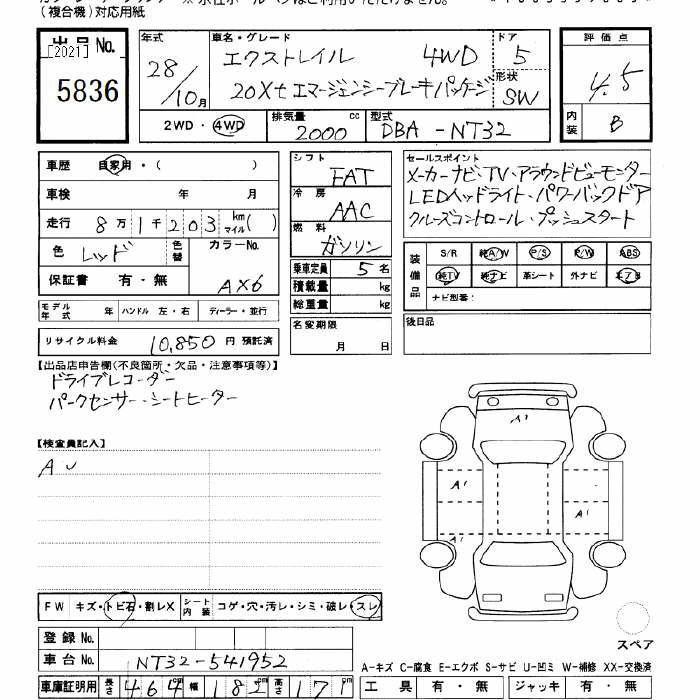 (複合機)対応用紙
出品No.
[2021]
5836
年式
28/10月
車名・グレード
エクストレイル 4WD
20Xt エマージェンシーブレーキパッケージ
ドア
5
形状
SW
評価点
4.5
内装
B
2WD・4WD
排気量 cc
2000
型式
DBA-NT32
車歴 自家用・( )
車検 年 月
走行 8万1千203 km マイル( )
色 レッド
色替
カラーNo.
AX6
保証書 有・無
モデル年式 年 ハンドル 左・右 ディーラー・並行
リサイクル料金 10,850円 預託済
シフト
FAT
冷房
AAC
燃料
ガソリン
乗車定員 5名
積載量 kg
総重量 kg
名変期限
月 日
セールスポイント
メーカーナビ・TV・アラウンドビューモニター
LEDヘッドライト・パワーバックドア
クルーズコントロール・プッシュスタート
装備品
S/R 純A/W P/S P/W ABS
純TV 純ナビ 革シート 外ナビ エアB
ナビ型番:
後日品
【出品店申告欄(不良箇所・欠品・注意事項等)】
ドライブレコーダー
パークセンサー・シートヒーター
【検査員記入】
AU
A1
A1
A1
A1
FW キズ・トビ石・割レX
シート内装 コゲ・穴・汚レ・シミ・破レ・スレ
登録No.
車台No. NT32-541952
車庫証明用 長さ 464cm 幅 182cm 高さ 171cm
スペア
A-キズ C-腐食 E-エクボ S-サビ U-凹ミ W-補修 XX-交換済
工具 有・無 ジャッキ 有・無